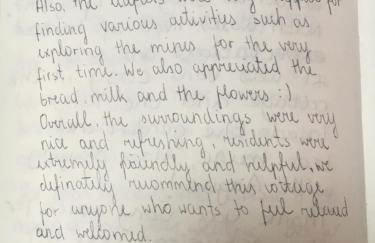 Also, the were very for
finding various activities such as
exploring the mines for the very
first time. We also appreciated the
bread, milk and the flowers :)
Overall, the surroundings were very
nice and refreshing, residents were
extremely friendly and helpful, we
definately recommend this cottage
for anyone who wants to feel relaxed
and welcomed.